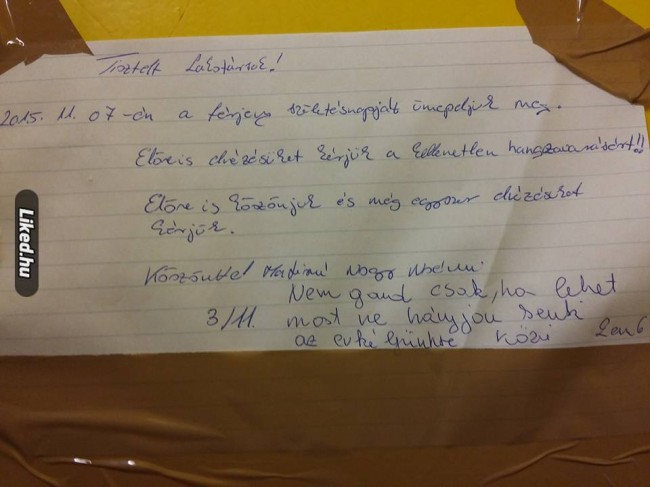 Tisztelt Lakótársak!
2015. 11. 07-én a férjem születésnapját ünnepeljük meg.
Előre is elnézésüket kérjük a kellemetlen hangzavarásért!!
Előre is köszönjük és még egyszer elnézésüket
kérjük.
Köszönettel Nagy
3/11.
Nem gond csak, ha lehet
most ne hányjon senki
az erkélyünkre köszi 2em 6
Liked.hu